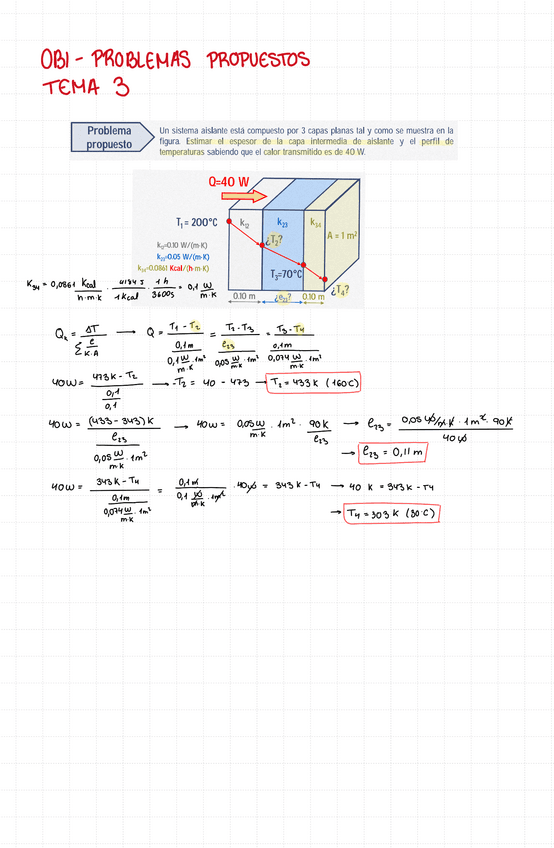 OBI - PROBLEMAS PROPUESTOS
TEMA 3
Problema propuesto
Un sistema aislante está compuesto por 3 capas planas tal y como se muestra en la
figura. Estimar el espesor de la capa intermedia de aislante y el perfil de
temperaturas sabiendo que el calor transmitido es de 40 W.
Q=40 W
T₁ = 200°C
k₁₂ k₂₃ k₃₄
A = 1 m²
¿T₂?
k₁₂=0.10 W/(m·K)
k₂₃=0.05 W/(m·K)
k₃₄=0.0861 Kcal/(h·m·K)
T₃=70°C
¿T₄?
0.10 m ¿e₂₃? 0.10 m
K₃₄ = 0,0861 Kcal/h·m·K · 4184 J/1 Kcal · 1h/3600s = 0,1 W/m·K
Qₖ = ΔT/(Σ e/K·A) → Q = (T₁ - T₂)/(0,1m/(0,1 W/m·K · 1m²)) = (T₂ - T₃)/(e₂₃/(0,05 W/m·K · 1m²)) = (T₃ - T₄)/(0,1m/(0,074 W/m·K · 1m²))
40W = (473K - T₂)/(0,1/0,1) → -T₂ = 40 - 473 → T₂ = 433 K (160C)
40W = (433 - 343)K/(e₂₃/(0,05 W/m·K · 1m²)) → 40W = 0,05W/m·K · 1m² · 90K/e₂₃ → e₂₃ = (0,05 W/m·K · 1m² · 90K)/40W
→ e₂₃ = 0,11 m
40W = (343K - T₄)/(0,1m/(0,074 W/m·K · 1m²)) = 0,1m/(0,1 W/m·K · 1m²) · 40W = 343K - T₄ → 40 K = 343K - T4
→ T₄ = 303 K (30°C)